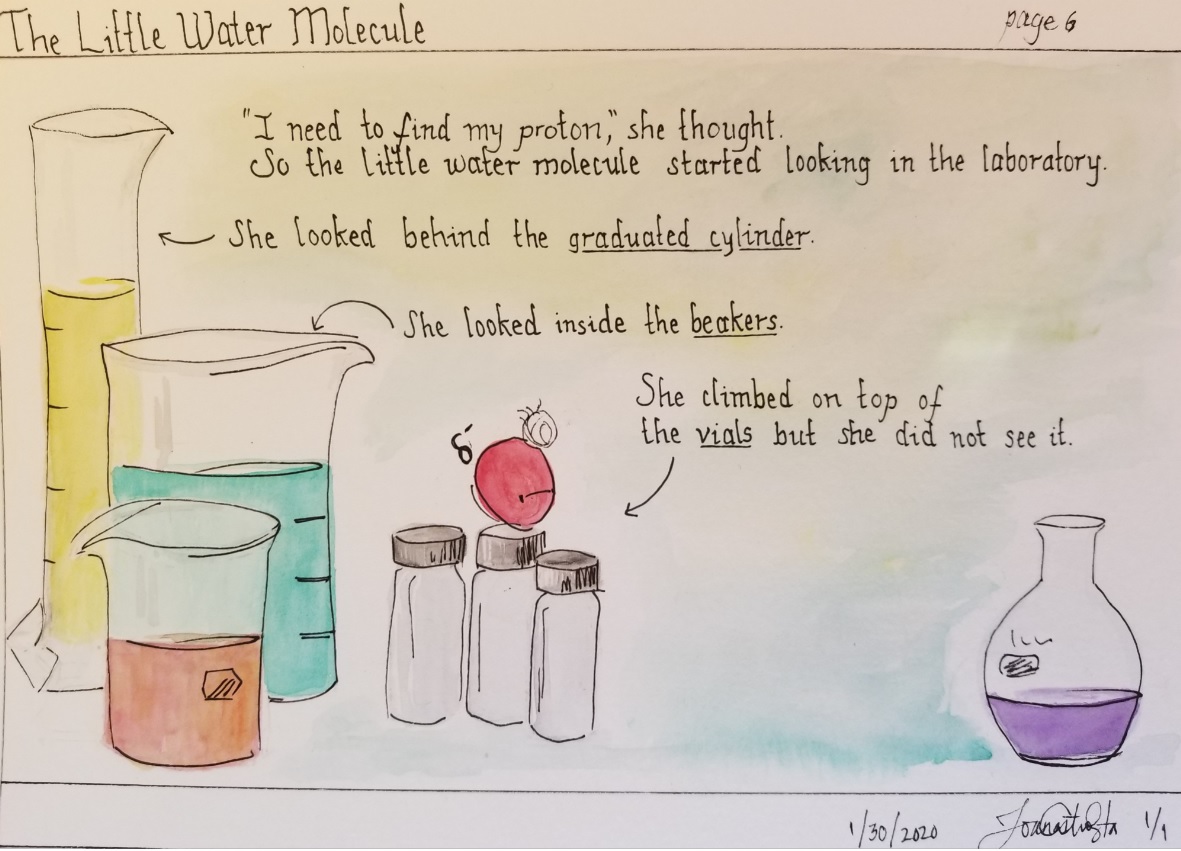 The Little Water Molecule
page 6
"I need to find my proton," she thought.
So the little water molecule started looking in the laboratory.
She looked behind the graduated cylinder.
She looked inside the beakers.
She climbed on top of
the vials but she did not see it.
δ-
1/30/2020
1/1